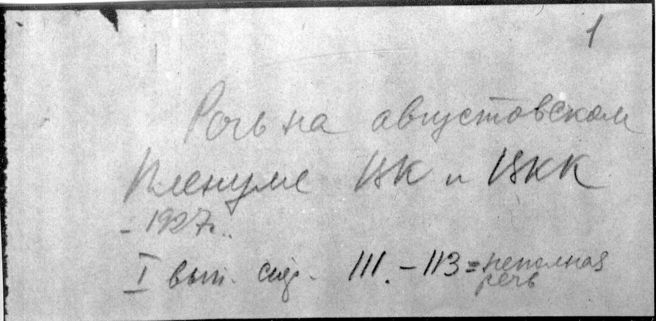 1
Речь на августовском
Пленуме ЦК и ЦКК
- 1927г.
I вып. стр. 111. - 113 = неполная
речь